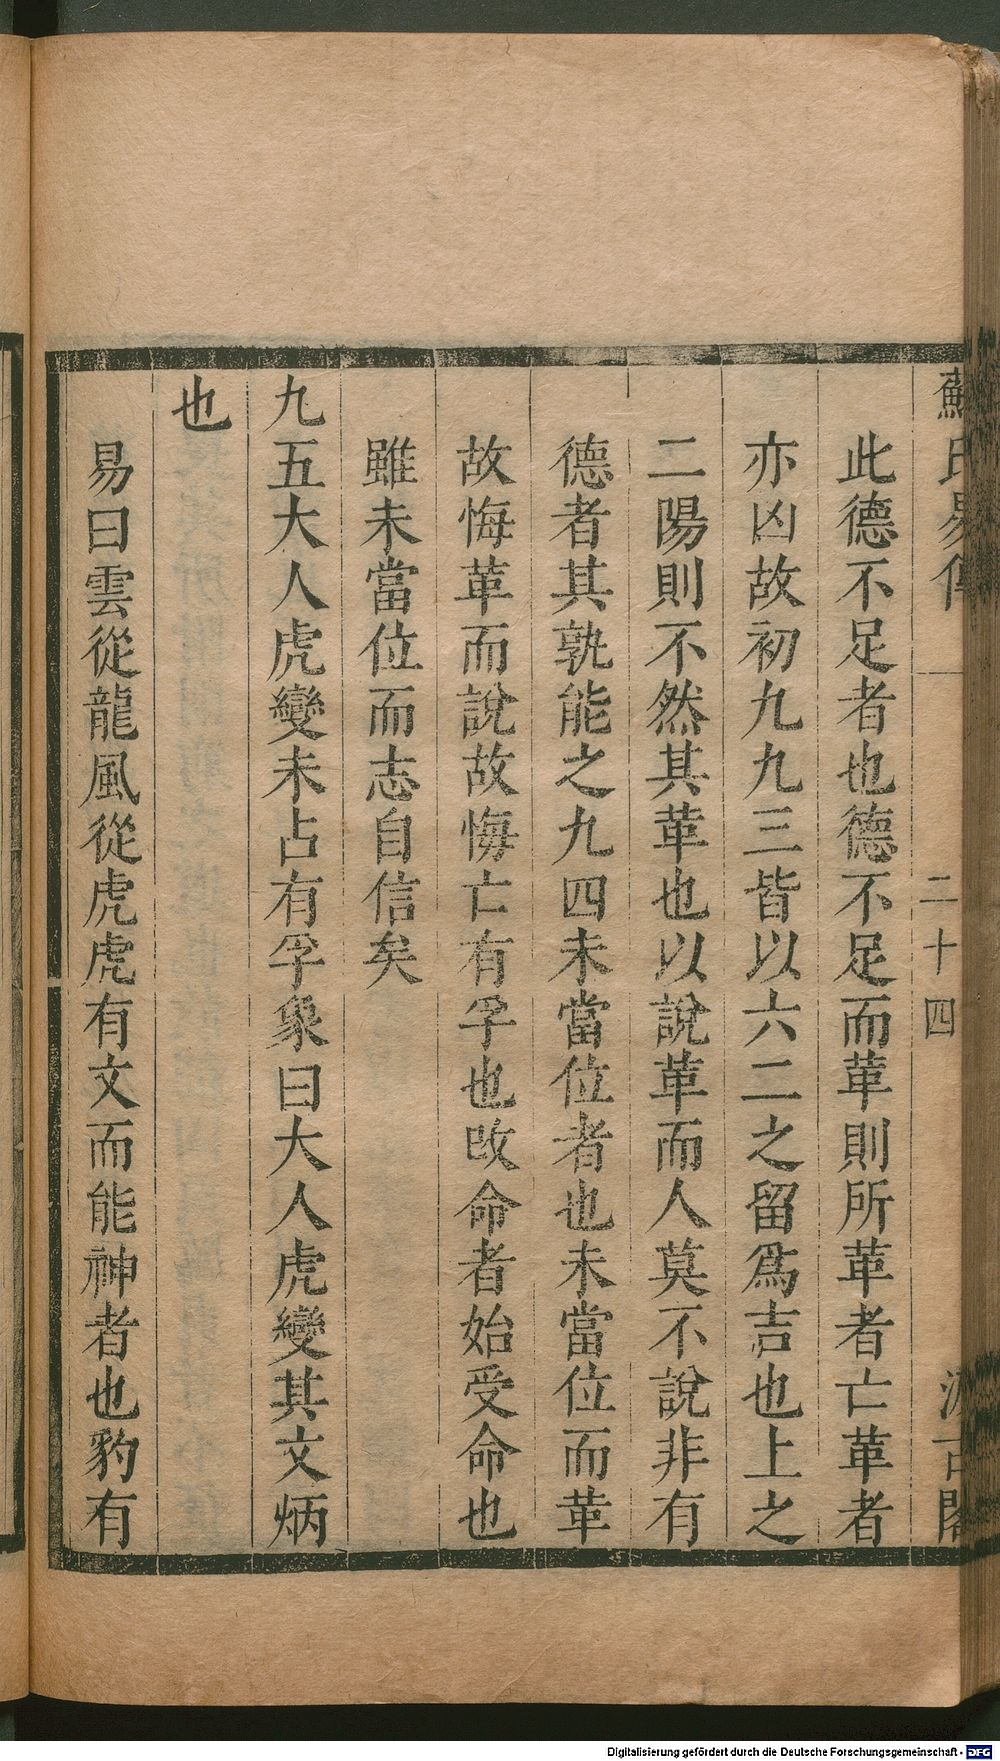 蘇氏易傳 二十四 汲古閣
此德不足者也德不足而革則所革者亡革者
亦凶故初九九三皆以六二之留爲吉也上之
二陽則不然其革也以說革而人莫不說非有
德者其孰能之九四未當位者也未當位而革
故悔革而說故悔亡有孚也改命者始受命也
雖未當位而志自信矣
九五大人虎變未占有孚象曰大人虎變其文炳
也
易曰雲從龍風從虎虎有文而能神者也豹有
Digitalisierung gefördert durch die Deutsche Forschungsgemeinschaft - DFG